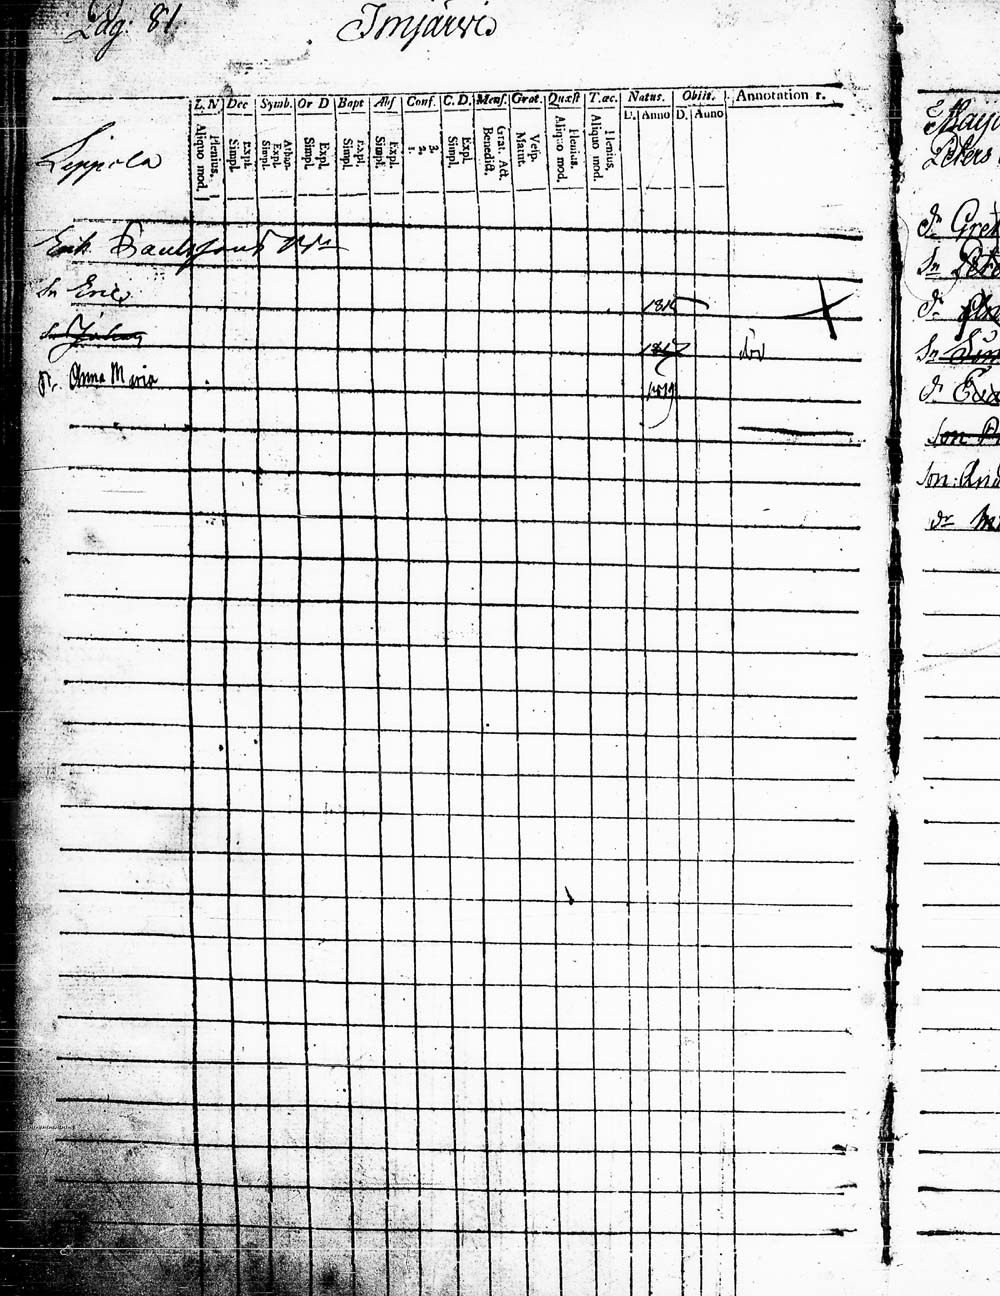 Pag: 81
Imjärvi
L. N Dec Symb. Or D Bapt Abs Conf. C. D. Mens. Grat. Quæst T. œc. Natus. Obiit. Annotation r.
D. Anno D. Anno
Plenius. Aliquo mod. Expl. Simpl. Athan. Expl. Simpl. Expl. Simpl. Expl. Simpl. Expl. Simpl. 3. 2. 1. Expl. Simpl. Grat. Act. Benedict. Vesp. Matut. Plenius. Aliquo mod. Plenius. Aliquo mod.
Leppola
Erik Paulsson
Sn Eric 1815
1817 död
Dr. Anna Maria 1819
Maja
Peters
dr Gret
Sn Pet
dr
Sn
dr
son
son. And
dr